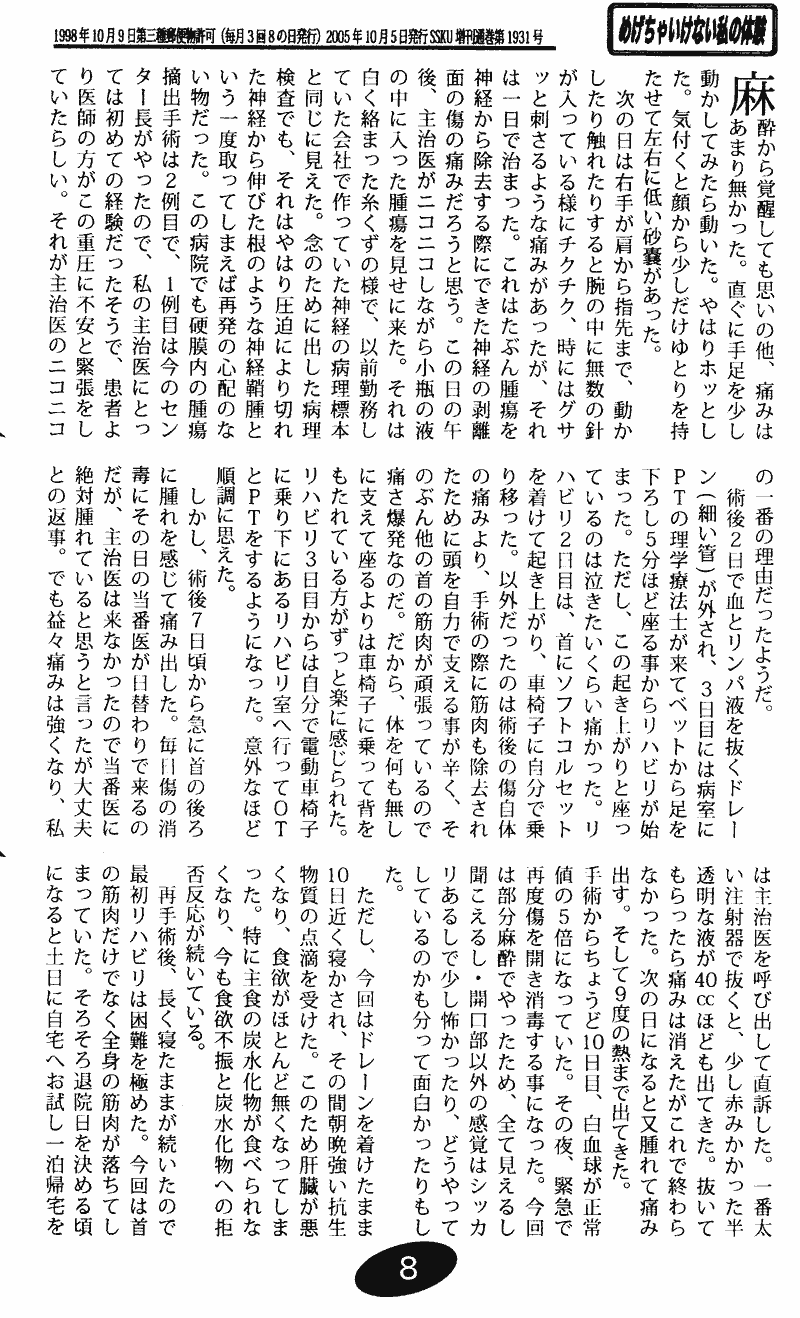 1998年10月9日第三種郵便物許可（毎月3回8の日発行）2005年10月5日発行SSKU増刊通巻第1931号
めげちゃいけない私の体験
麻酔から覚醒しても思いの他、痛みは
あまり無かった。直ぐに手足を少し
動かしてみたら動いた。やはりホッとし
た。気付くと顔から少しだけゆとりを持
たせて左右に低い砂嚢があった。
次の日は右手が肩から指先まで、動か
したり触れたりすると腕の中に無数の針
が入っている様にチクチク、時にはグサ
ッと刺さるような痛みがあったが、それ
は一日で治まった。これはたぶん腫瘍を
神経から除去する際にできた神経の剥離
面の傷の痛みだろうと思う。この日の午
後、主治医がニコニコしながら小瓶の液
の中に入った腫瘍を見せに来た。それは
白く絡まった糸くずの様で、以前勤務し
ていた会社で作っていた神経の病理標本
と同じに見えた。念のために出した病理
検査でも、それはやはり圧迫により切れ
た神経から伸びた根のような神経鞘腫と
いう一度取ってしまえば再発の心配のな
い物だった。この病院でも硬膜内の腫瘍
摘出手術は2例目で、1例目は今のセン
ター長がやったので、私の主治医にとっ
ては初めての経験だったそうで、患者よ
り医師の方がこの重圧に不安と緊張をし
ていたらしい。それが主治医のニコニコ
の一番の理由だったようだ。
術後2日で血とリンパ液を抜くドレー
ン(細い管)が外され、3日目には病室に
PTの理学療法士が来てベットから足を
下ろし5分ほど座る事からリハビリが始
まった。ただし、この起き上がりと座っ
ているのは泣きたいくらい痛かった。リ
ハビリ2日目は、首にソフトコルセット
を着けて起き上がり、車椅子に自分で乗
り移った。以外だったのは術後の傷自体
の痛みより、手術の際に筋肉も除去され
たために頭を自力で支える事が辛く、そ
のぶん他の首の筋肉が頑張っているので
痛さ爆発なのだ。だから、体を何も無し
に支えて座るよりは車椅子に乗って背を
もたれている方がずっと楽に感じられた。
リハビリ3日目からは自分で電動車椅子
に乗り下にあるリハビリ室へ行ってOT
とPTをするようになった。意外なほど
順調に思えた。
しかし、術後7日頃から急に首の後ろ
に腫れを感じて痛み出した。毎日傷の消
毒にその日の当番医が日替わりで来るの
だが、主治医は来なかったので当番医に
絶対腫れていると思うと言ったが大丈夫
との返事。でも益々痛みは強くなり、私
は主治医を呼び出して直訴した。一番太
い注射器で抜くと、少し赤みかかった半
透明な液が40ccほども出てきた。抜いて
もらったら痛みは消えたがこれで終わら
なかった。次の日になると又腫れて痛み
出す。そして9度の熱まで出てきた。
手術からちょうど10日目、白血球が正常
値の5倍になっていた。その夜、緊急で
再度傷を開き消毒する事になった。今回
は部分麻酔でやったため、全て見えるし
聞こえるし・開口部以外の感覚はシッカ
リあるしで少し怖かったり、どうやって
しているのかも分って面白かったりもし
た。
ただし、今回はドレーンを着けたまま
10日近く寝かされ、その間朝晩強い抗生
物質の点滴を受けた。このため肝臓が悪
くなり、食欲がほとんど無くなってしま
った。特に主食の炭水化物が食べられな
くなり、今も食欲不振と炭水化物への拒
否反応が続いている。
再手術後、長く寝たままが続いたので
最初リハビリは困難を極めた。今回は首
の筋肉だけでなく全身の筋肉が落ちてし
まっていた。そろそろ退院日を決める頃
になると土日に自宅へお試し一泊帰宅を
8